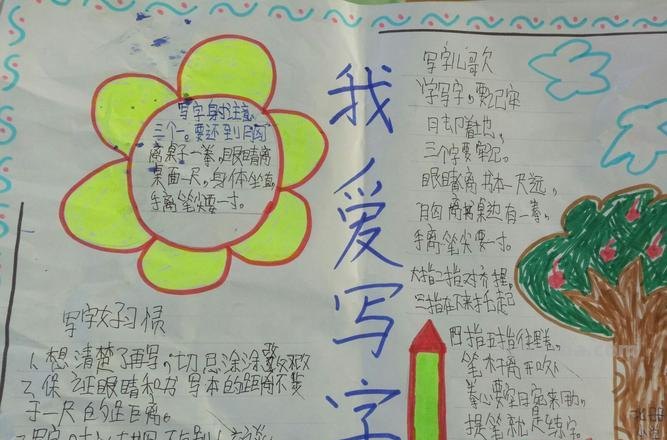 写字身书注意
三个一。要达到胸
离桌子一拳，眼睛离
桌面一尺，身体坐直，
手离笔尖要一寸。
写字好习惯
1、想清楚了再写，切忌涂涂改改
2、保证眼睛和书写本的距离不要
于一尺的距离。
我爱写字
写字儿歌
学写字，要记牢
三个字要牢记。
眼睛离书本一尺远，
胸离桌边有一拳，
手离笔尖要一寸。
大指二指对齐捏，
三指在下来托起
四指五指往里卷，
笔杆离开
拳心要
提笔就是练字